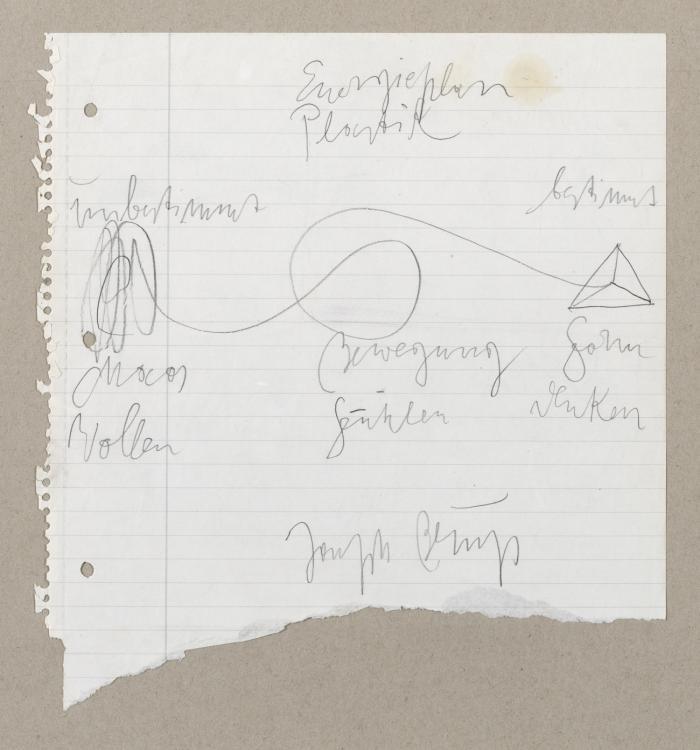 Energieplan
Plastik
Unbestimmt
bestimmt
Chaos
Bewegung
Form
Wollen
Fühlen
Denken
Joseph Beuys